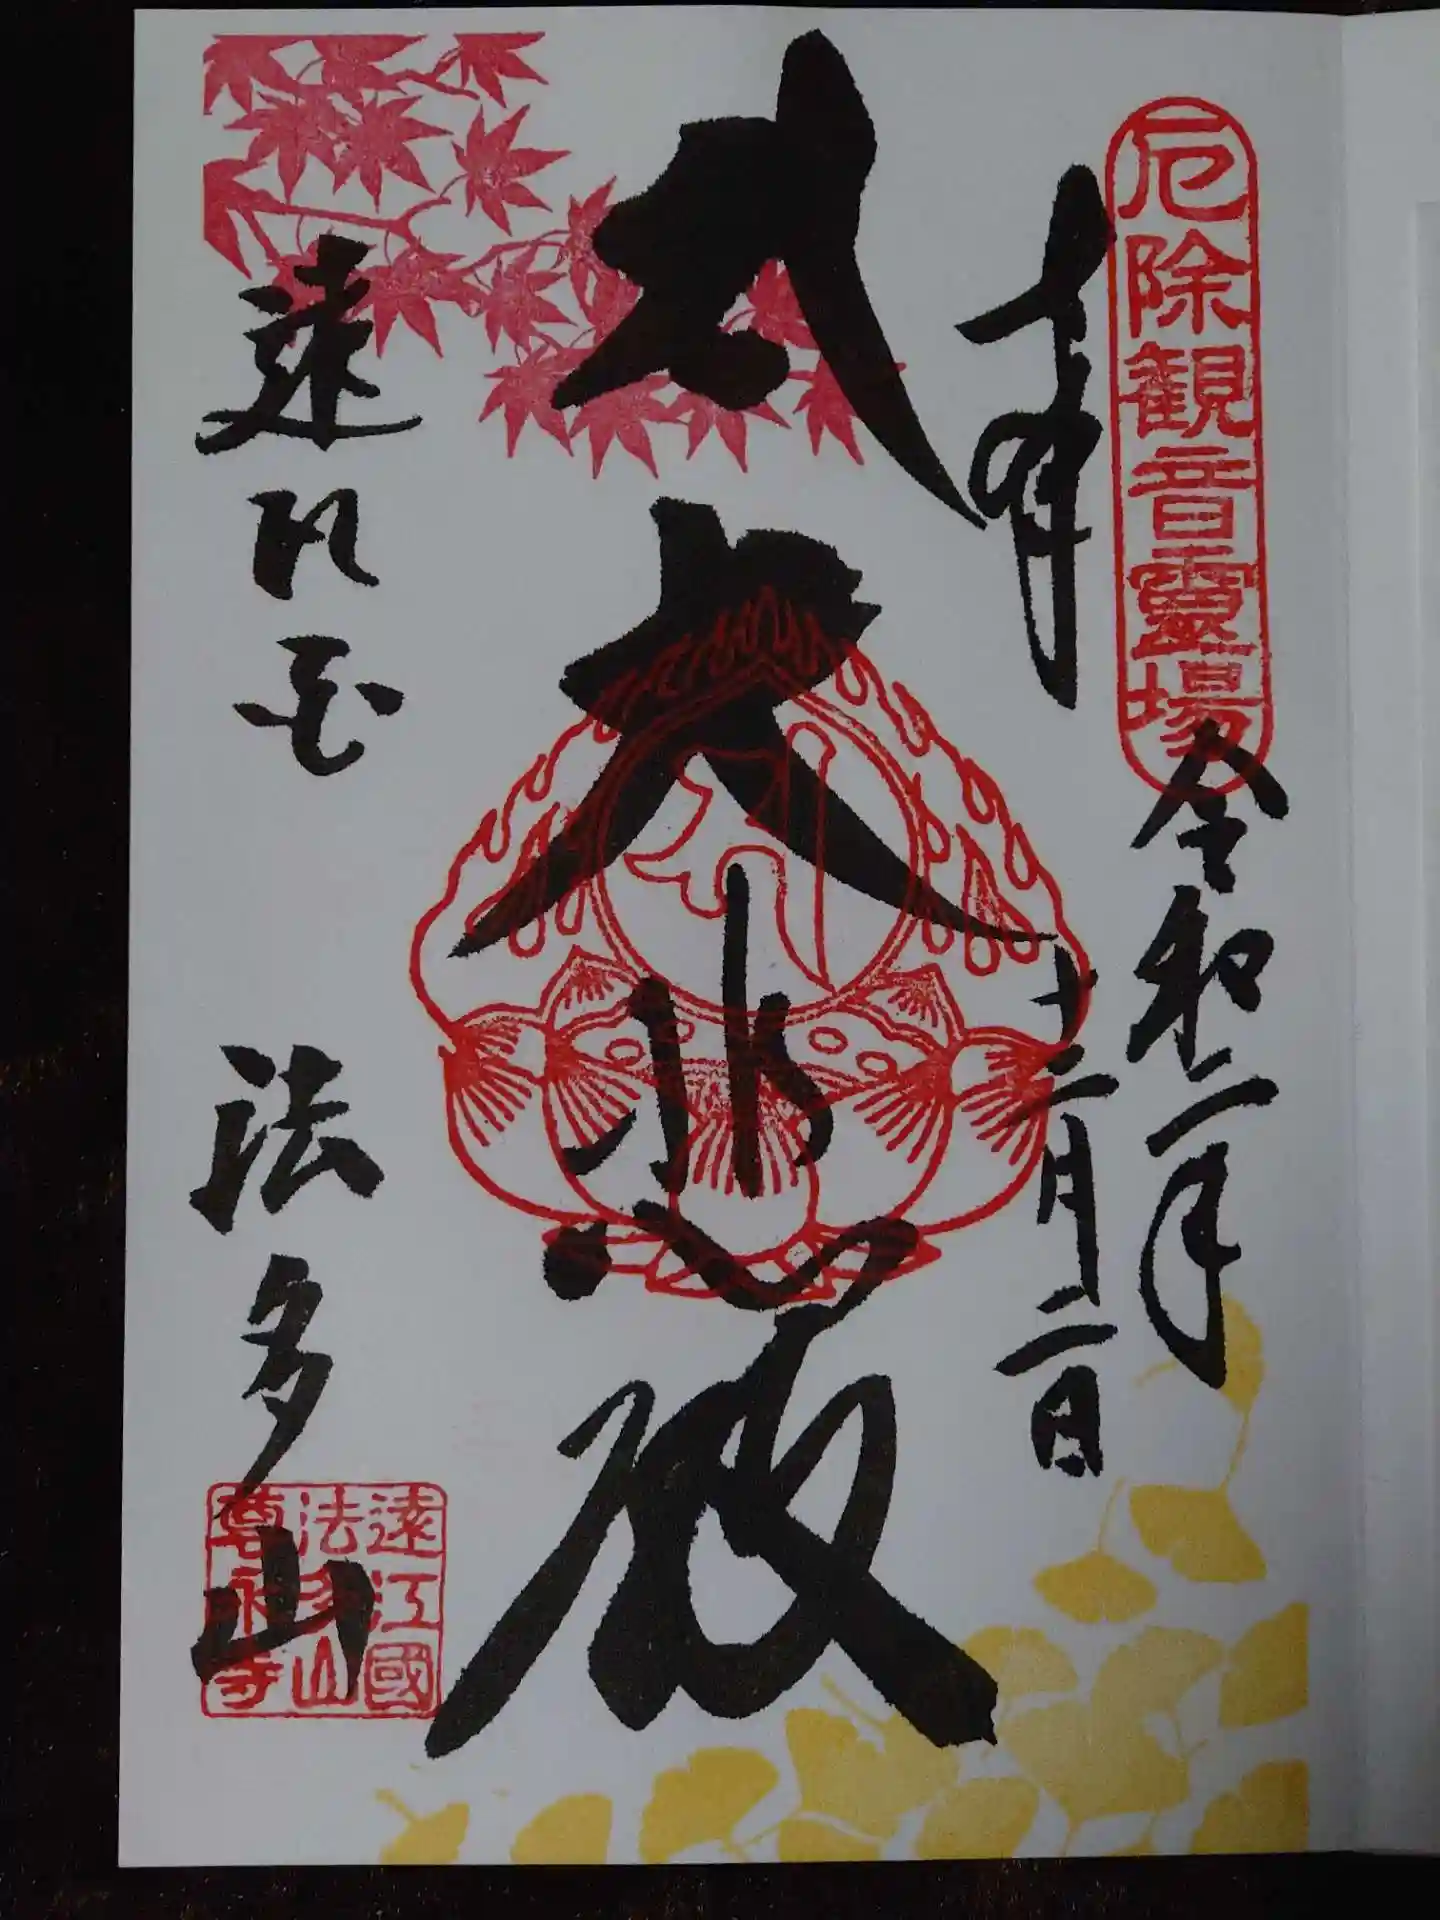 厄除観音霊場
奉拝
令和二年
十二月二日
大悲殿
遠江国
法多山
遠江國
法多山
尊永寺